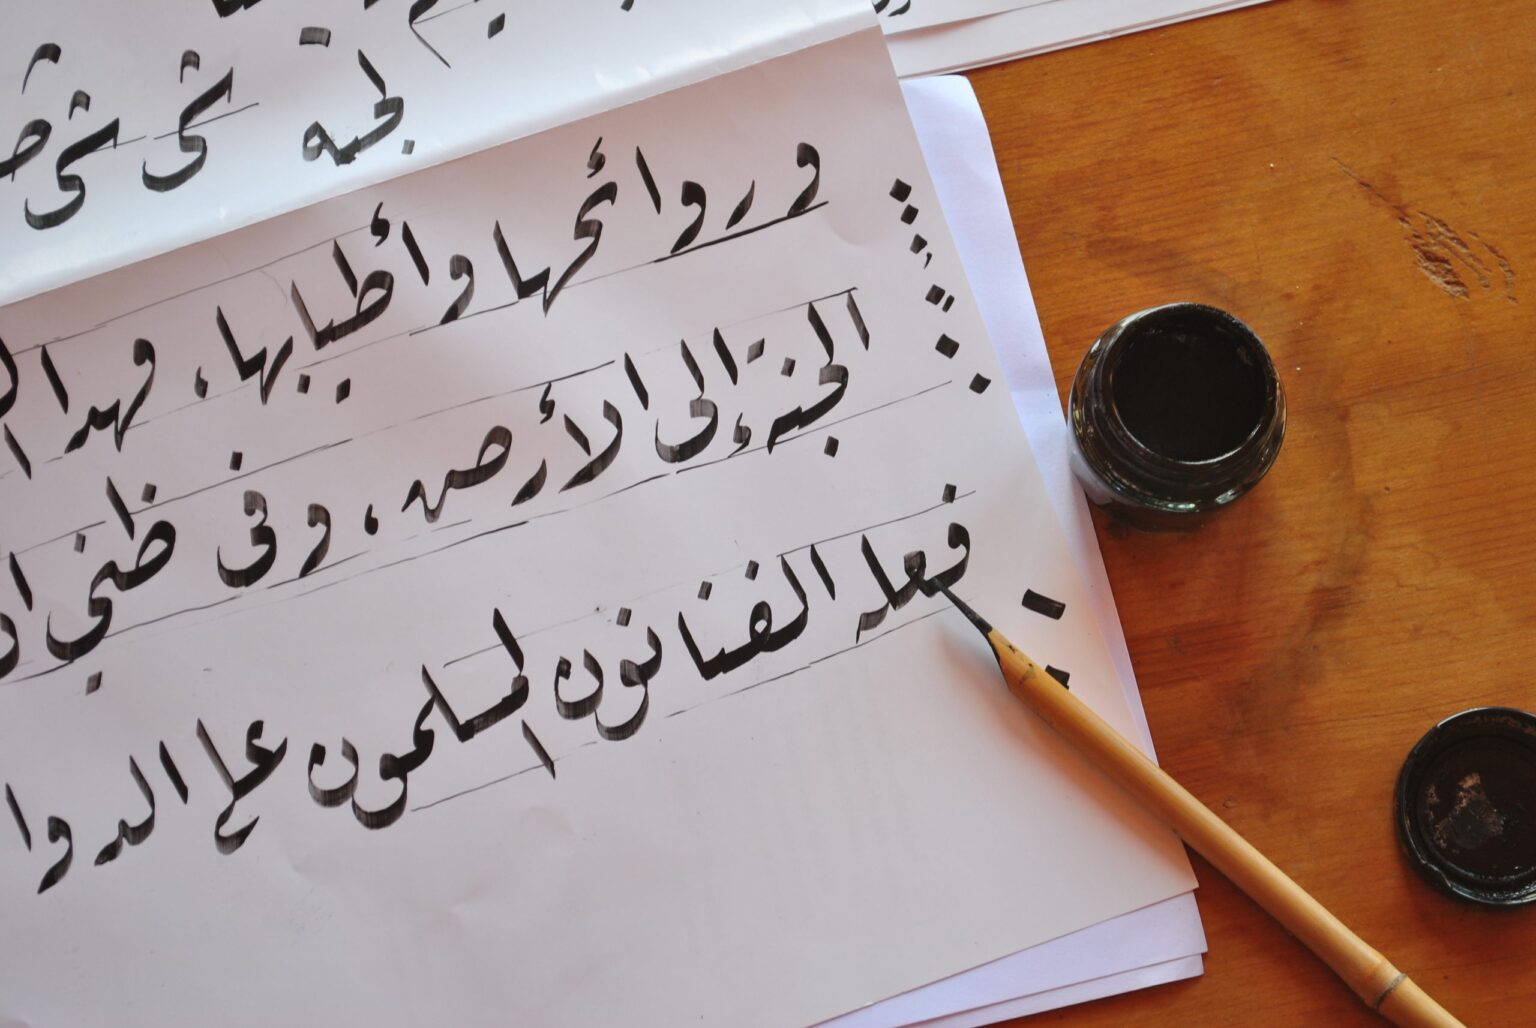 لجنه شى شى
و روائحها وأطيابها، فهذا
الجنة إلى الأرض، وفى ظني
فعله الفنانون المسلمون على الدوا